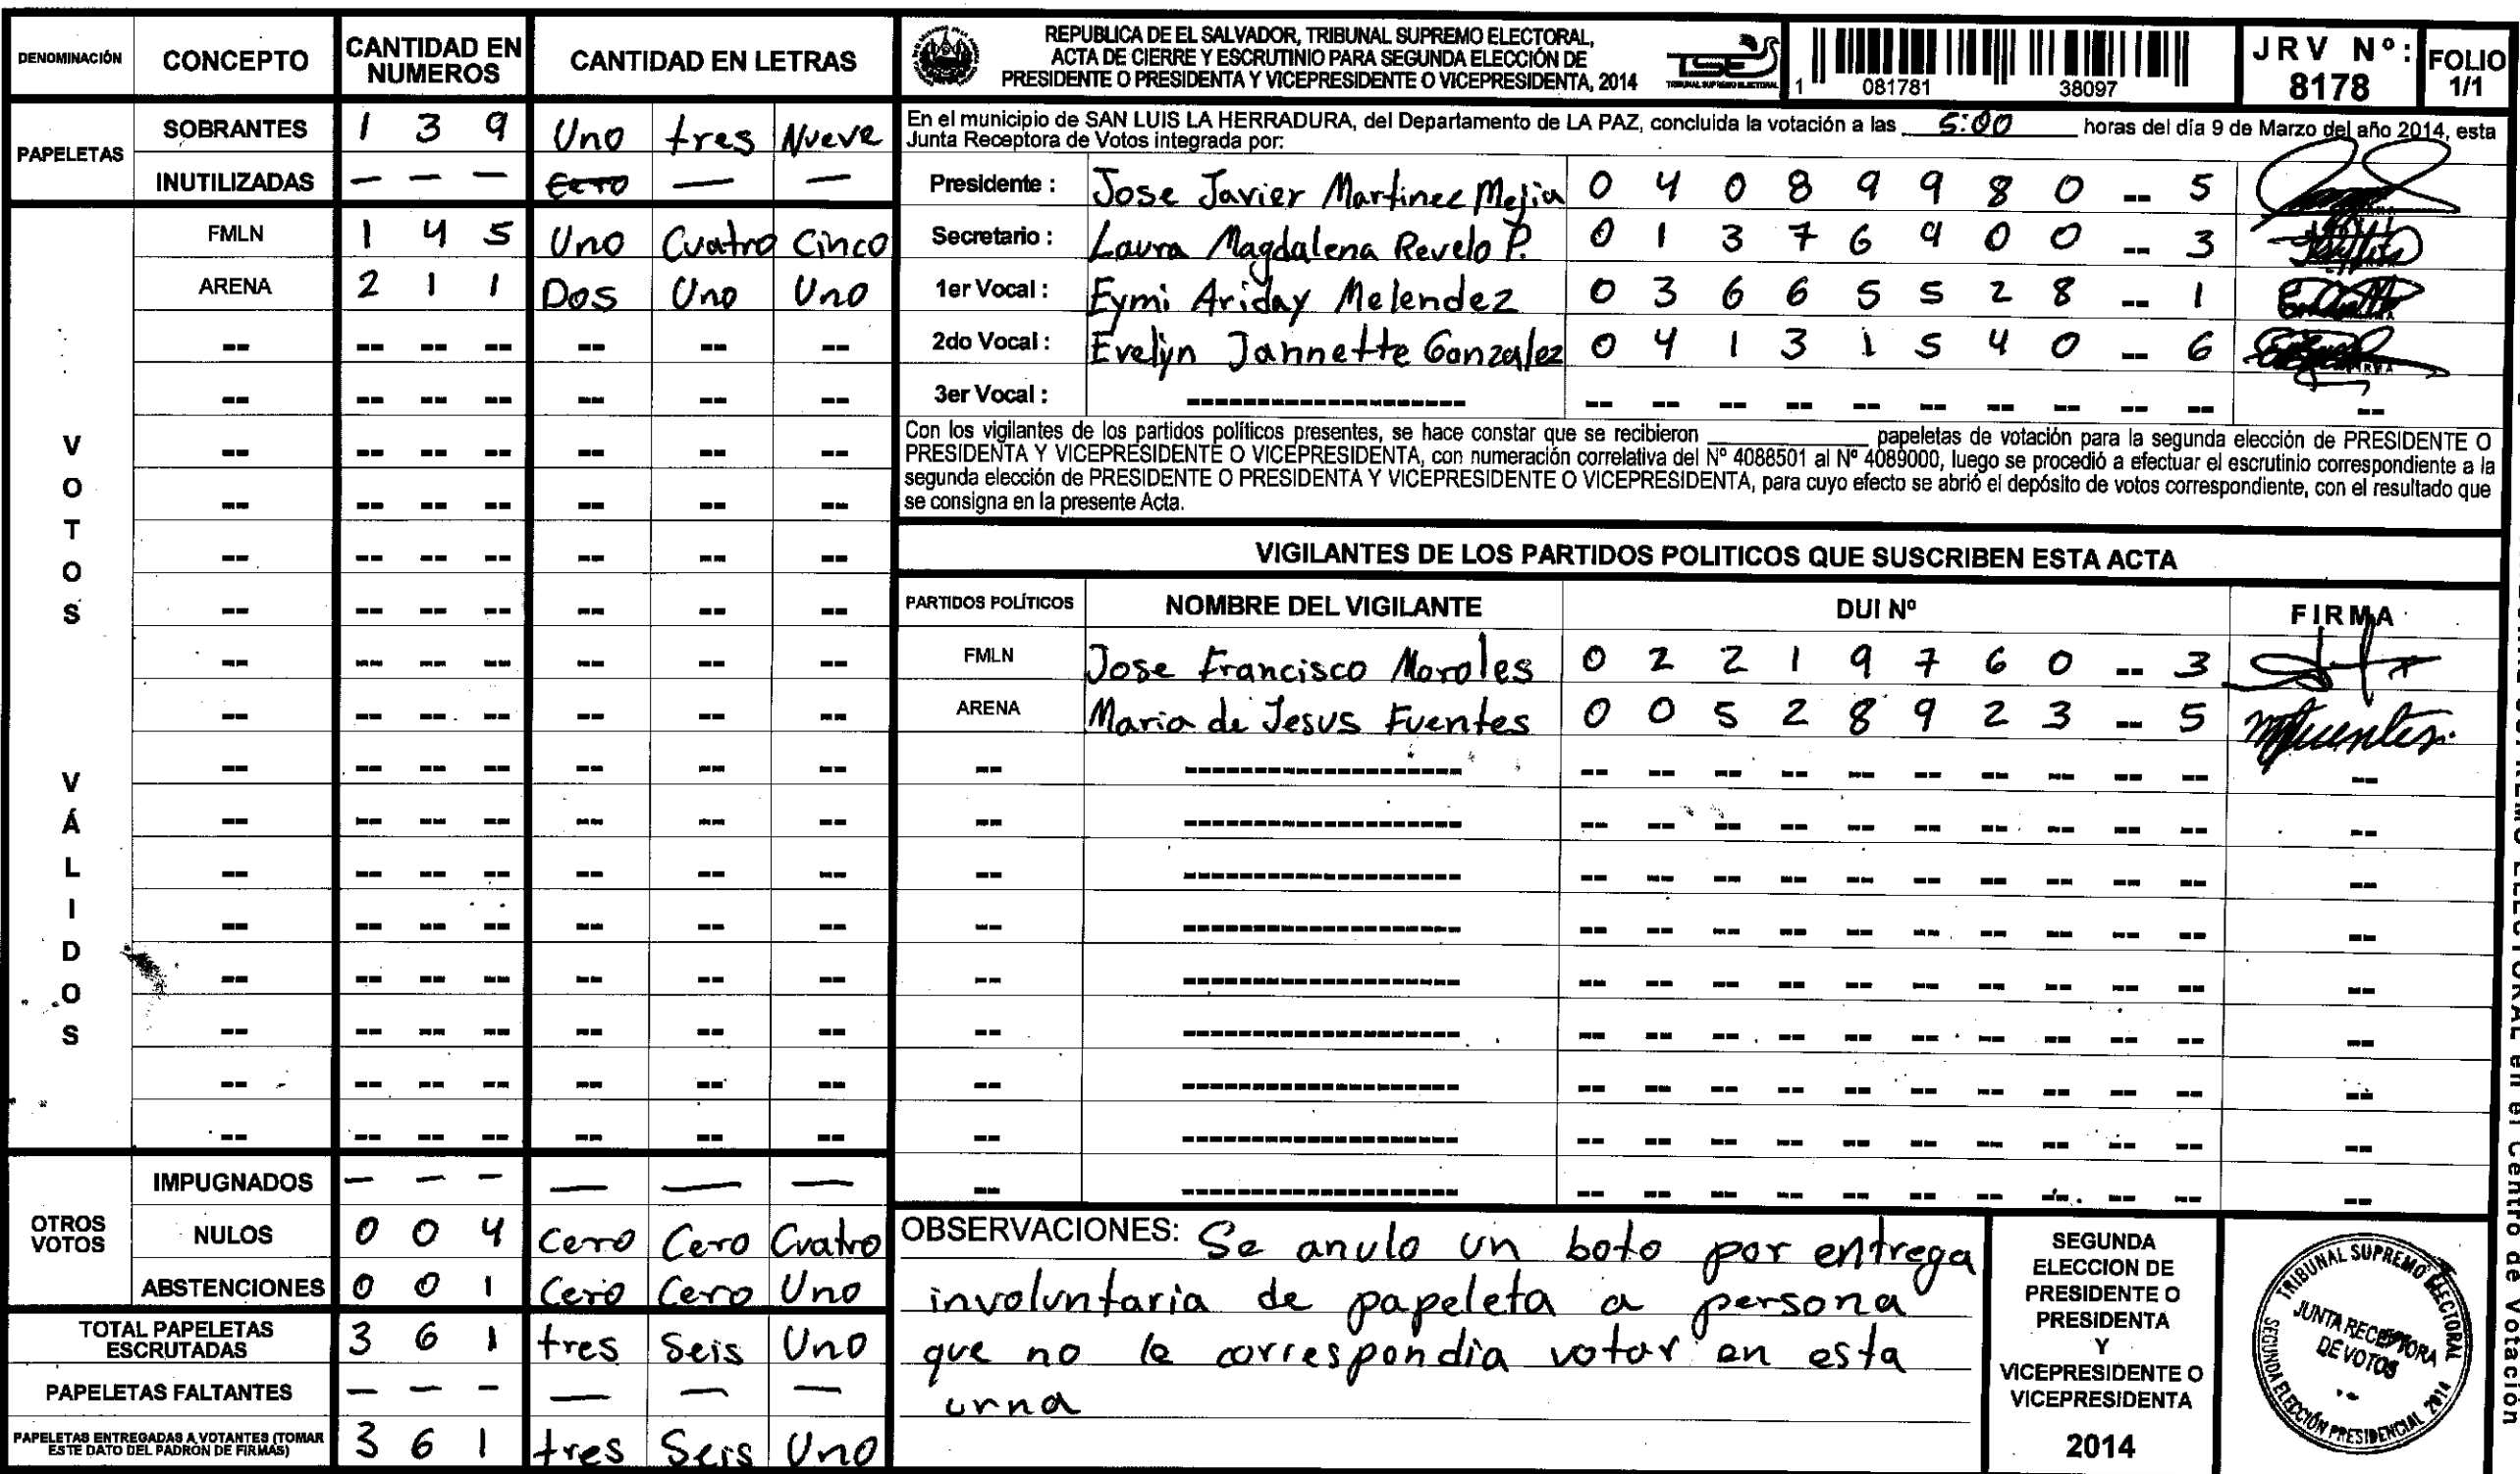 DENOMINACIÓN CONCEPTO CANTIDAD EN NUMEROS CANTIDAD EN LETRAS
PAPELETAS
SOBRANTES 1 3 9 Uno tres Nueve
INUTILIZADAS — — — — —
VOTOS VÁLIDOS
FMLN 1 4 5 Uno Cuatro Cinco
ARENA 2 1 1 Dos Uno Uno
OTROS VOTOS
IMPUGNADOS — — — — — —
NULOS 0 0 4 Cero Cero Cuatro
ABSTENCIONES 0 0 1 Cero Cero Uno
TOTAL PAPELETAS ESCRUTADAS 3 6 1 tres Seis Uno
PAPELETAS FALTANTES — — — — — —
PAPELETAS ENTREGADAS A VOTANTES (TOMAR ESTE DATO DEL PADRÓN DE FIRMAS) 3 6 1 tres Seis Uno
REPUBLICA DE EL SALVADOR, TRIBUNAL SUPREMO ELECTORAL,
ACTA DE CIERRE Y ESCRUTINIO PARA SEGUNDA ELECCIÓN DE
PRESIDENTE O PRESIDENTA Y VICEPRESIDENTE O VICEPRESIDENTA, 2014
TSE
TRIBUNAL SUPREMO ELECTORAL
1 081781 38097
JRV Nº: 8178
FOLIO 1/1
En el municipio de SAN LUIS LA HERRADURA, del Departamento de LA PAZ, concluida la votación a las 5:00 horas del día 9 de Marzo del año 2014, esta
Junta Receptora de Votos integrada por:
Presidente : Jose Javier Martinez Mejia 0 4 0 8 9 9 8 0 -- 5
Secretario : Laura Magdalena Revelo P. 0 1 3 7 6 9 0 0 -- 3
1er Vocal : Eymi Ariday Melendez 0 3 6 6 5 5 2 8 -- 1
2do Vocal : Evelyn Jannette Gonzalez 0 4 1 3 1 5 4 0 -- 6
3er Vocal :
Con los vigilantes de los partidos políticos presentes, se hace constar que se recibieron ____ papeletas de votación para la segunda elección de PRESIDENTE O
PRESIDENTA Y VICEPRESIDENTE O VICEPRESIDENTA, con numeración correlativa del Nº 4088501 al Nº 4089000, luego se procedió a efectuar el escrutinio correspondiente a la
segunda elección de PRESIDENTE O PRESIDENTA Y VICEPRESIDENTE O VICEPRESIDENTA, para cuyo efecto se abrió el depósito de votos correspondiente, con el resultado que
se consigna en la presente Acta.
VIGILANTES DE LOS PARTIDOS POLITICOS QUE SUSCRIBEN ESTA ACTA
PARTIDOS POLÍTICOS NOMBRE DEL VIGILANTE DUI Nº FIRMA
FMLN Jose Francisco Morales 0 2 2 1 9 7 6 0 -- 3
ARENA Maria de Jesus Fuentes 0 0 5 2 8 9 2 3 -- 5 MFuentes.
OBSERVACIONES: Se anulo un boto por entrega
involuntaria de papeleta a persona
que no le correspondia votar en esta
urna
SEGUNDA
ELECCION DE
PRESIDENTE O
PRESIDENTA
Y
VICEPRESIDENTE O
VICEPRESIDENTA
2014
TRIBUNAL SUPREMO ELECTORAL
JUNTA RECEPTORA
DE VOTOS
SEGUNDA ELECCIÓN PRESIDENCIAL 2014
ELECTORAL en el Centro de Votación